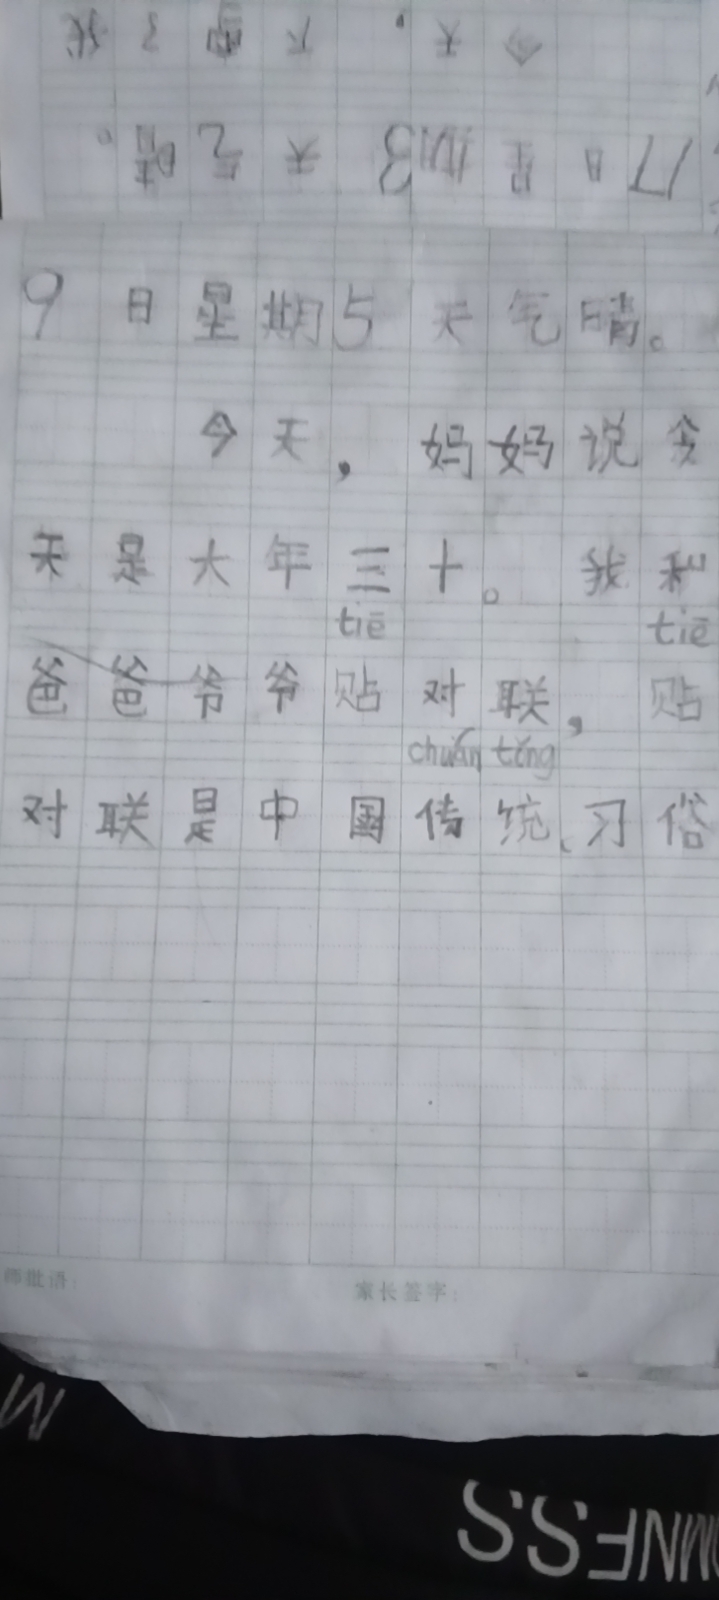 17日星期3天气晴。
9日星期5天气晴。
今天，妈妈说今
天是大年三十。我和
tiē tiē
爸爸爷爷贴对联，贴
chuán tǒng
对联是中国传统、习俗
师批语：
家长签字：